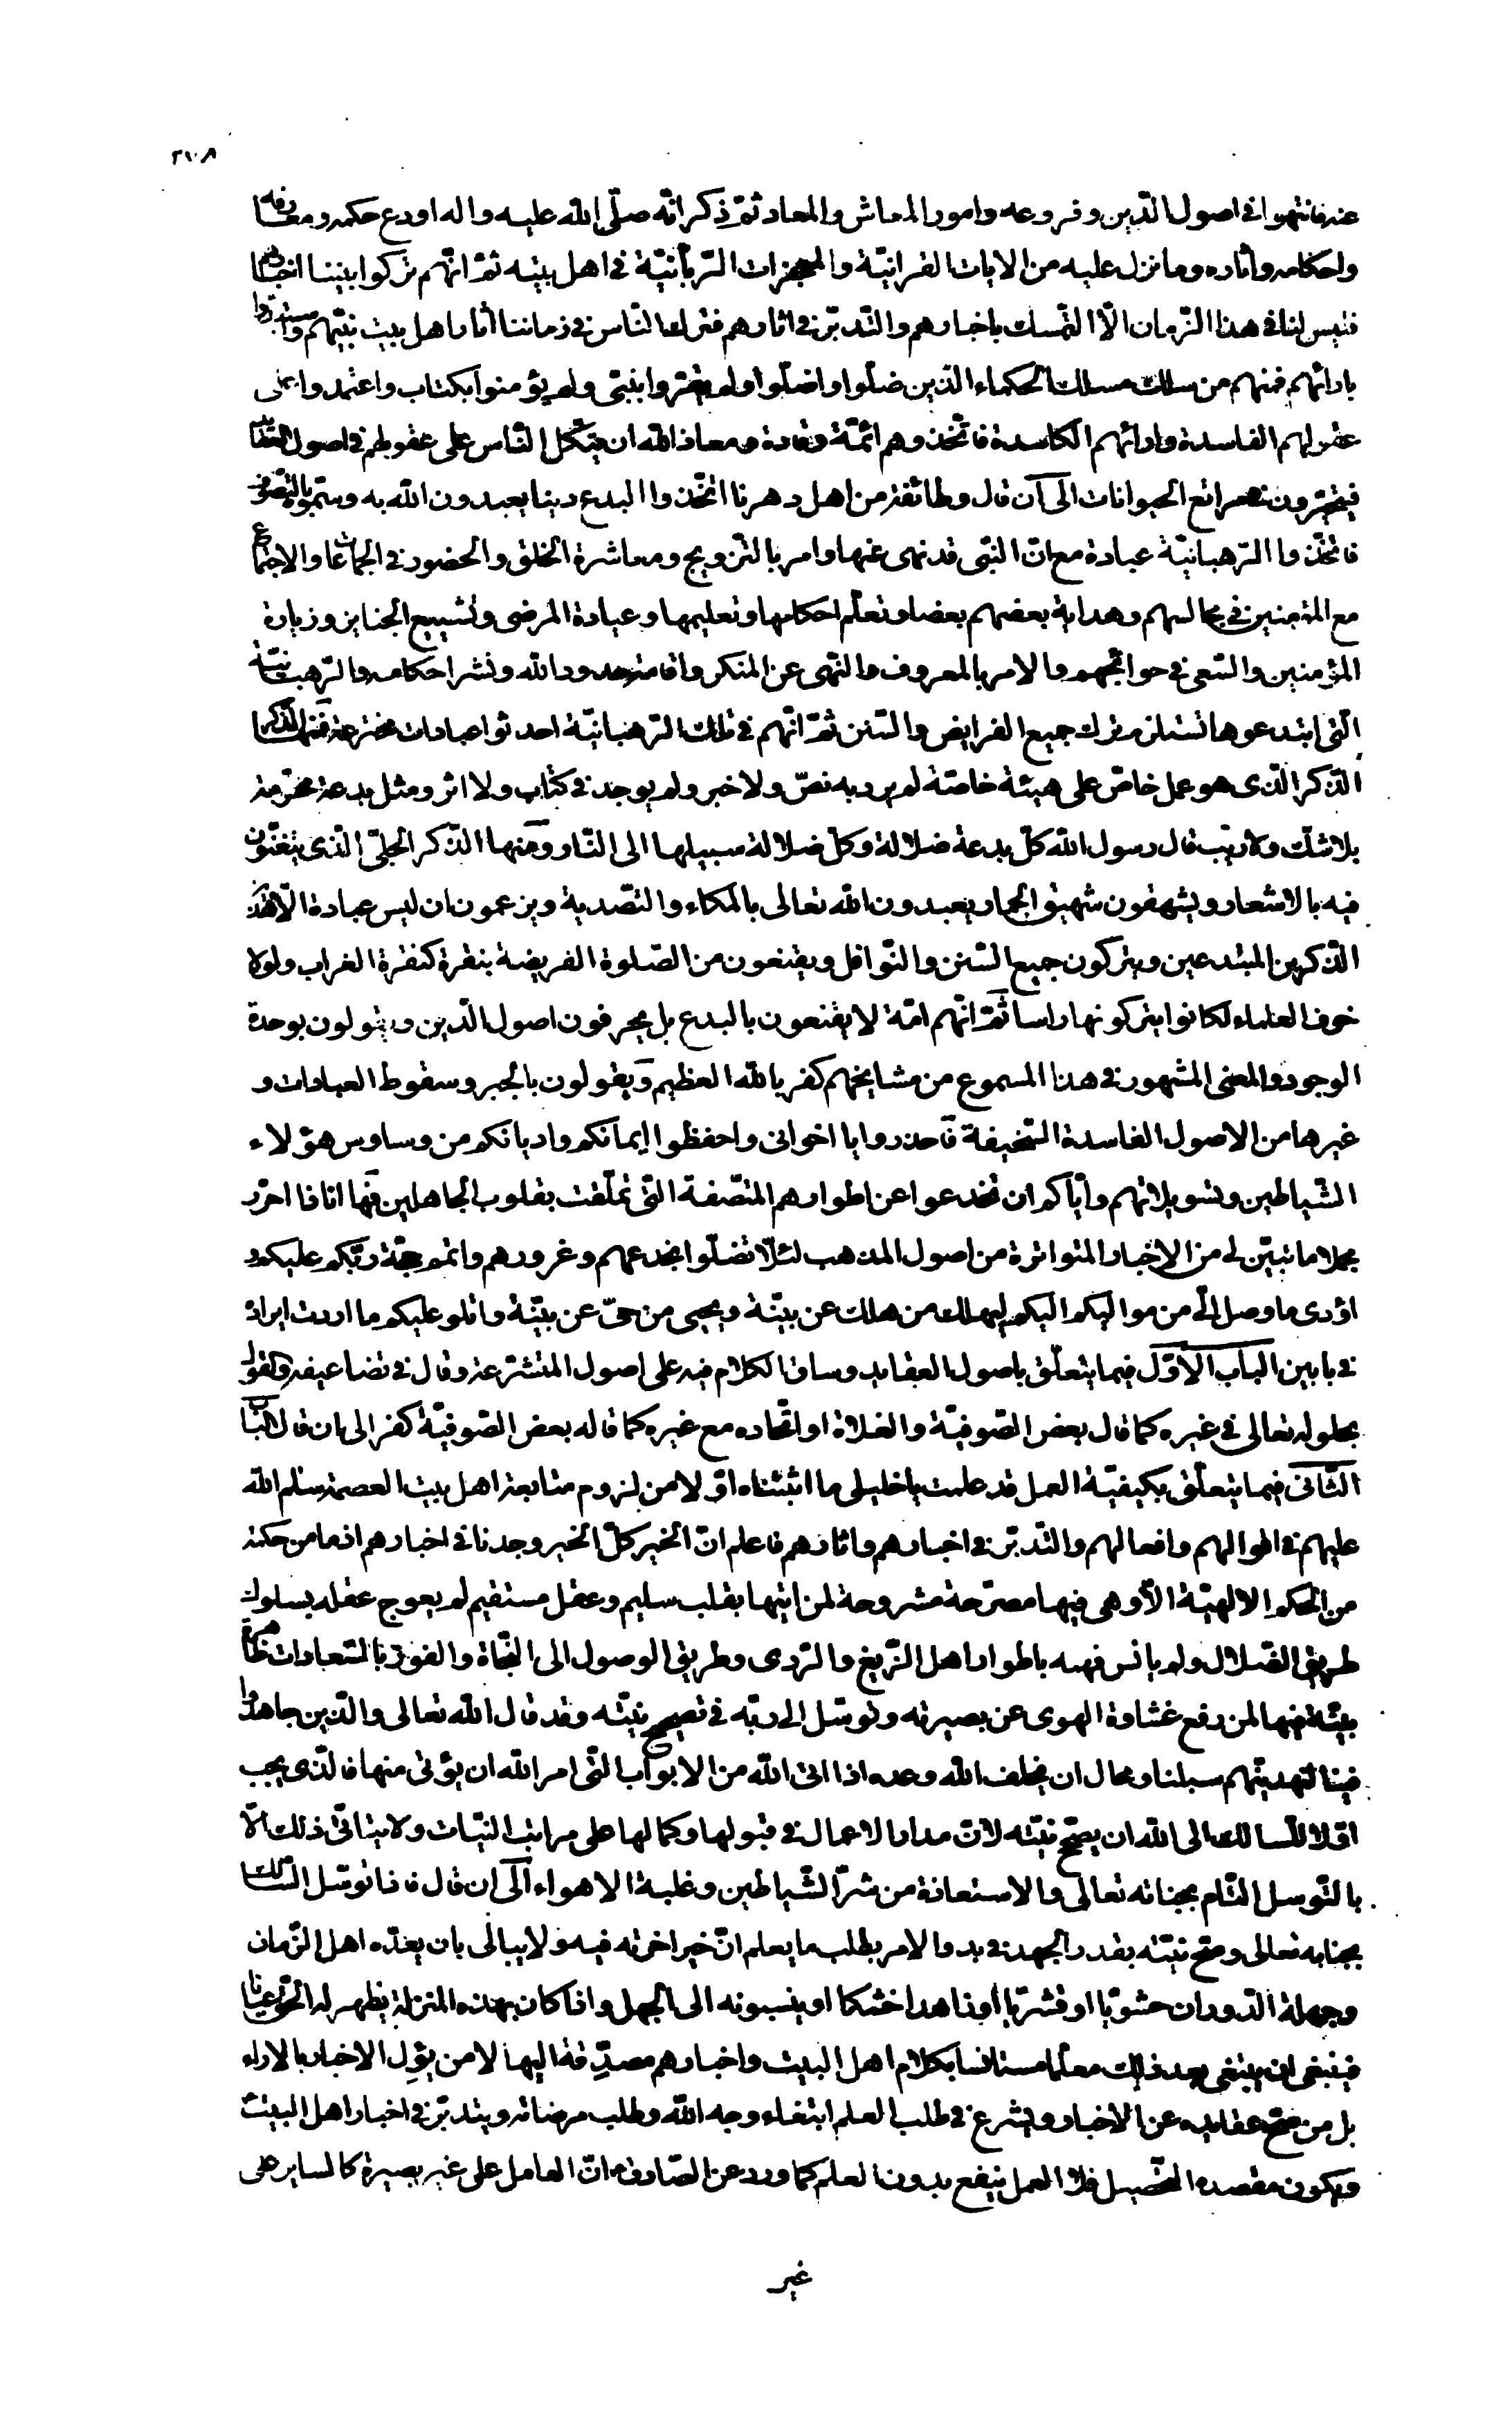 ٣٧٠٨
عنه فانتهوا في اصول الدّين وفروعه وامور المعاش والمعاد ثمّ ذكر انّه صلّى الله عليه واله اودع حكمه ومعارفه
واحكامه واثاره وما نزل عليه من الايات القرانيّة والمعجزات الرّبانيّة في اهل بيته ثمّ انّهم تركوا بيننا اخبارهم
فليس لنا في هذا الزّمان الّا التّمسك باخبارهم والتّدبّر في اثارهم فترك النّاس في زماننا اثار اهل بيت نبيّهم واستبدّوا
بارائهم فمنهم من سلك مسلك الحكماء الذين ضلّوا واضلّوا ولم يقرّوا بنبيّ ولم يؤمنوا بكتاب واعتمدوا على
عقولهم الفاسدة وارائهم الكاسدة فاتّخذوهم ائمّة وقادة ومعاذ الله ان يتّكل النّاس على عقولهم في اصول العقايد
فيتحيّرون في مراتع الحيوانات الى ان قال وطائفة من اهل دهرنا اتّخذوا البدع دينا يعبدون الله به وسمّوه بالتّصوّف
فاتّخذوا الرّهبانيّة عبادة مع انّ النّبي قد نهى عنها وامر بالتّزويج ومعاشرة الخلق والحضور في الجماعات والاجتماع
مع المؤمنين في مجالسهم وهداية بعضهم بعضا وتعلّم احكامها وتعليمها وعيادة المرضى وتشييع الجنايز وزيارة
المؤمنين والسّعي في حوائجهم والامر بالمعروف والنّهي عن المنكر واقامة حدود الله ونشر احكامه والرّهبانيّة
الّتي ابتدعوها تستلزم ترك جميع الفرايض والسّنن ثمّ انّهم في تلك الرّهبانيّة احدثوا عبادات مخترعة فمنها الذّكر
الذّكر الّذي هو عمل خاصّ على هيئة خاصّة لم يرد به نصّ ولا خبر ولم يوجد في كتاب ولا اثر ومثل بدعة محرّمة
بلا شكّ ولا ريب قال رسول الله كلّ بدعة ضلالة وكلّ ضلالة سبيلها الى النّار ومنها الذّكر الجليّ الّذي يتغنّون
فيه بالاشعار ويشهقون شهيق الحمار يعبدون الله تعالى بالمكاء والتّصدية ويزعمون ان ليس عبادة الّا هذين
الذّكرين المبتدعين ويتركون جميع السّنن والنّوافل ويقنعون من الصّلوة الفريضة بنقرة كنقرة الغراب ولولا
خوف العلماء لكانوا يتركونها راسا ثمّ انّهم امّة لا يقنعون بالبدع بل يحرفون اصول الدّين ويقولون بوحدة
الوجود والمعنى المشهور في هذا المسموع من مشايخهم كفر بالله العظيم ويقولون بالجبر وسقوط العبادات و
غيرها من الاصول الفاسدة السّخيفة فاحذروا يا اخواني واحفظوا ايمانكم واديانكم من وساوس هؤلاء
الشّياطين وتسويلاتهم وايّاكم ان تخدعوا عن اطوارهم المتصّفة الّتي تملّقت بقلوب الجاهلين فها انا ذا احرّر
مجملا ما تبيّن لي من الاخبار المتواترة من اصول المذهب لئلّا تضلّوا بخدعهم وغرورهم واتمم حجّة ربّكم عليكم و
اؤدي ما وصل اليّ من مواليكم اليكم ليهلك من هلك عن بيّنة ويحيى من حيّ عن بيّنة واتلو عليكم ما اردت ايراده
في بابين الباب الاوّل فيما يتعلّق باصول العقايد وساق الكلام فيه على اصول المتشرّعة وقال في تضاعيفه والقول
بحلوله تعالى في غيره كما قال بعض الصّوفيّة والغلاة او اتّحاده مع غيره كما قاله بعض الصّوفيّة كفر الى ان قال الباب
الثّاني فيما يتعلّق بكيفيّة العمل قد علمت يا خليلي ما اثبتناه اوّلا من لزوم متابعة اهل بيت العصمة سلام الله
عليهم في اقوالهم وافعالهم والتّدبّر في اخبارهم واثارهم فاعلم انّ الخير كلّ الخير وجدنا في اخبارهم اذ ما من حكمة
من الحكم الالهيّة الّا وهي فيها مصرّحة مشروحة لمن اتيها بقلب سليم وعقل مستقيم لم يعوج عقله بسلوك
طريق الضّلال ولم يانس فهمه باطوار اهل الزّيغ والرّدى وطريق الوصول الى النّجاة والفوز بالسّعادات ظاهرة
بيّنة فيها لمن رفع غشاوة الهوى عن بصيرته وتوسّل الى ربّه في تصحيح نيّته وقد قال الله تعالى والّذين جاهدوا
فينا لنهدينّهم سبلنا ومحال ان يخلف الله وعده اذا اتى الله من الابواب الّتي امر الله ان يؤتى منها فالّذي يجب
اوّلا للسّالك الى الله ان يصحّح نيّته لانّ مدار الاعمال في قبولها وكمالها على مراتب النيّات ولا يتاتّى ذلك الّا
بالتّوسل التّام بجنابه تعالى والاستعانة من شرّ الشّياطين وغلبة الاهواء الى ان قال فاذا توسّل السّالك
بجنابه تعالى وصحّح نيّته بقدر الجهد في بدو الامر يطلب ما يعلم انّ خير اخرته فيه ولا يبالي بان يعدّه اهل الزّمان
وجهلة الدّوران حشويّا او قشريّا او زاهدا خشكا او ينسبونه الى الجهل واذا كان بهذه المنزلة يظهر له الحقّ عيانا
فينبغي ان يبتغي بعد ذلك معلّما مستانسا بكلام اهل البيت واخبارهم مصدّقة اليها لا من يؤل الاخبار بالاراء
بل من صحّح عقايده عن الاخبار ويشرع في طلب العلم ابتغاء وجه الله وطلب مرضاته ويتدبّر في اخبار اهل البيت
ويكون مقصده التّحصيل فلا العمل ينفع بدون العلم كما ورد عن الصّادق انّ العامل على غير بصيرة كالساير على
غير